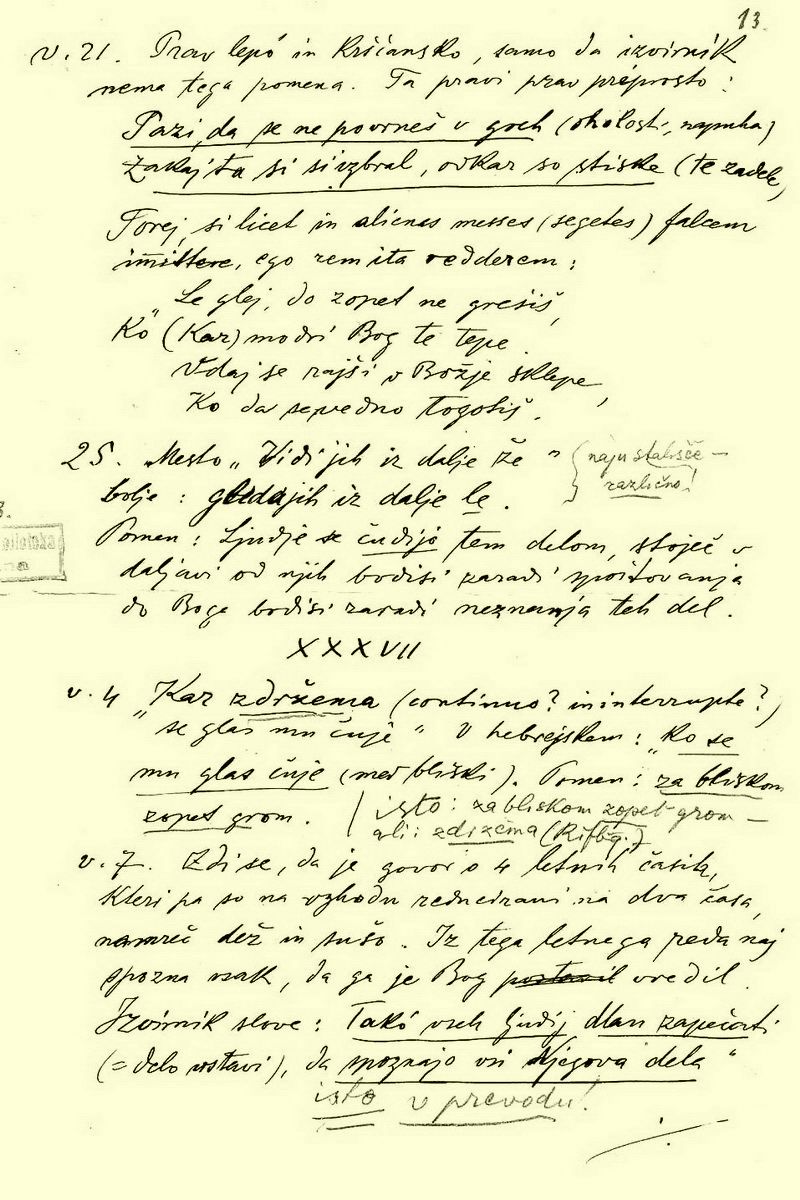 13.
v. 21. Prav lepó in kršćansko, samo da izvirnik
nema tega pomena. Ta pravi prav préprosto:
Pazi, da se ne povrneš v greh (oholosti, napuha)
Zakaj ta si si izbral, odkar so stiske (te zadele)
Torej, si licet in alienas messes (segetes) falcem
immittere, ego rem ita redderem:
"Le glej, da zopet ne grešiš,
Ko (Kar) modri Bog te tepe.
Vdaj se rajši v Božje sklepe,
Ko da vedno togotiš.
25. Mesto "Vidi jih iz dalje že" naju stališče –
bolje: gledajih iz dalje le. različno!
Pomen: Ljudje se čudijo tem delom, stoječ v
daljavi od njih bodisi zaradi spoštovanja
do Boga bodisi zaradi neznanja teh del.
XXXVII
v. 4 "Kar zdržema (continuo? ininterrupte?)
se glas mu čuje" V hebrejskem: "Ko se
mu glas čuje (med bliski). Pomen: za bliskom
zopet grom. isto: za bliskom zopet grom –
ali: zdržema
v. 7. Zdi se, da je govor o 4 letnih časih,
kteri pa so na vzhodu reducirani na dva časa,
namreč dež in sušo. Iz tega letnega reda naj
spozna vsak, da ga je Bog postavil vredil.
Izvirnik slove: Takó vseh ljudij dlan zapečati
(= delo ustavi), da spoznajo vsi Njegova dela"
isto v prevodu!